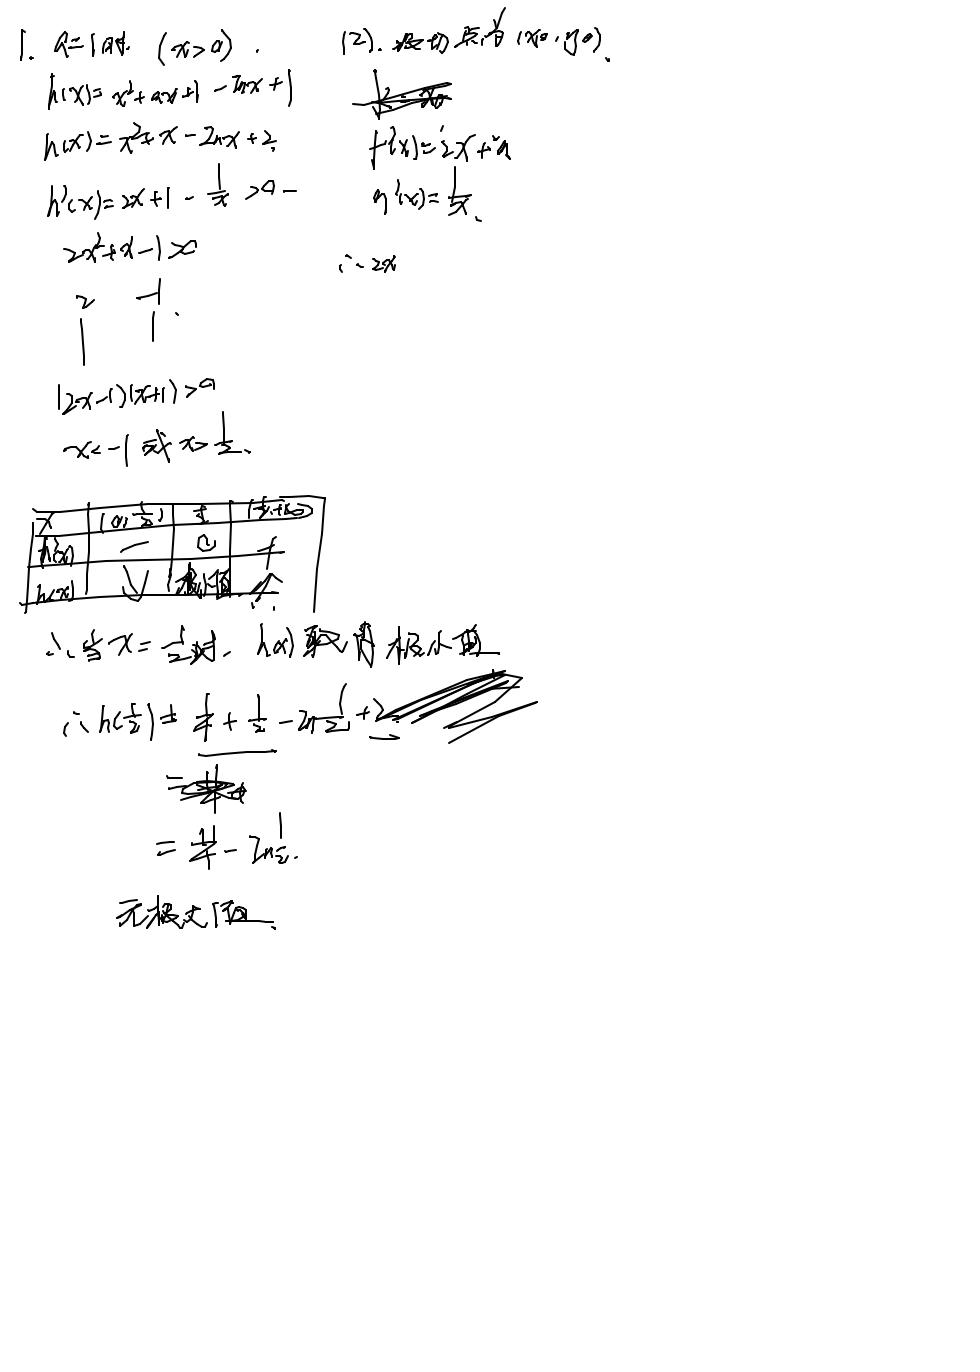 1. a=1时 (x>0).
h(x)=x²+ax+1-lnx+1
h(x)=x²+x-lnx+2.
h'(x)=2x+1-1/x>0-
2x²+x-1>0
2 -1
1 1.
(2x-1)(x+1)>0
x<-1或x>1/2.
x (0,1/2) 1/2 (1/2,+∞)
h'(x) - 0 +
h(x) ↘ 极小值 ↗
∴当x=1/2时. h(x)取得极小值
∴h(1/2)=1/4+1/2-ln1/2+2
=11/4-ln1/2.
无极大值.
(2). 设切点为(x0,y0).
f'(x)=2x+a
g'(x)=1/x.
∴2x